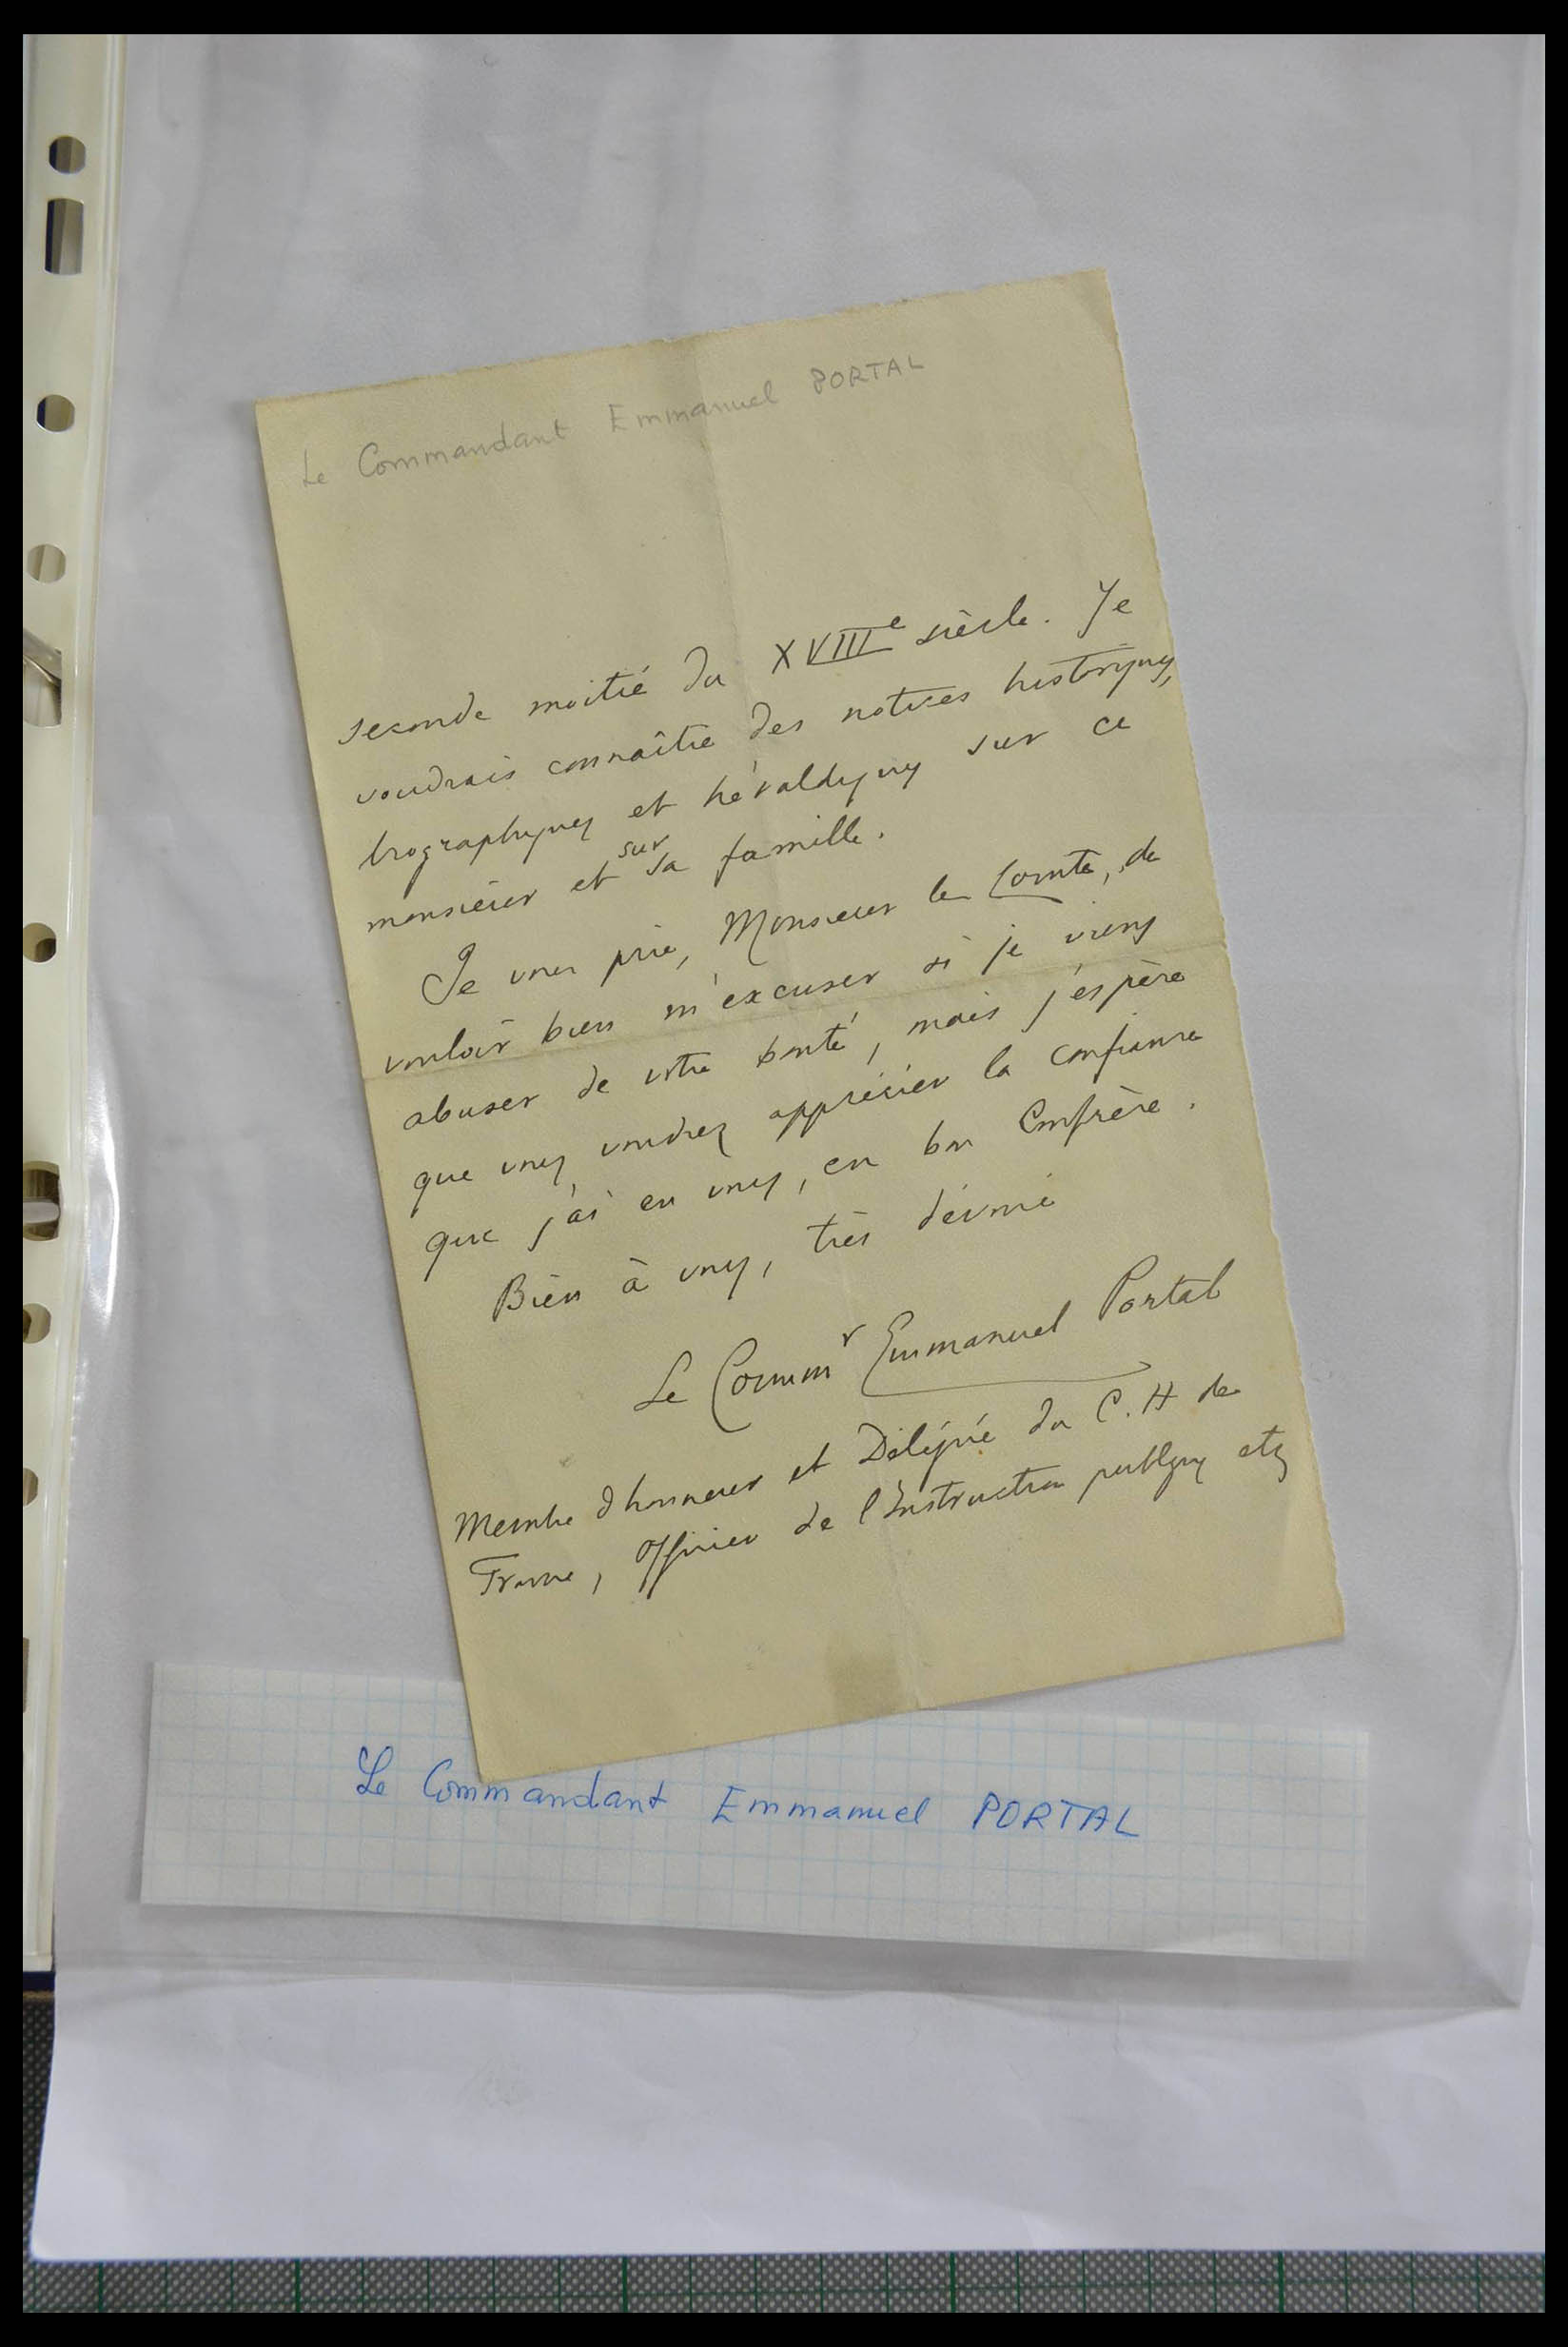 Le Commandant Emmanuel PORTAL
seconde moitié du XVIIIe siècle. Je
voudrais connaître des notices historiques,
biographiques et héraldiques sur ce
monsieur et sur sa famille.
Je vous prie, Monsieur le Comte, de
vouloir bien m'excuser si je viens
abuser de votre bonté, mais j'espère
que vous voudrez apprécier la confiance
que j'ai en vous, en bon Confrère.
Bien à vous, très dévoué
Le Commr Emmanuel Portal
Membre d'honneur et Délégué du C. H de
France, Officier de l'Instruction publique etc
Le Commandant Emmanuel PORTAL